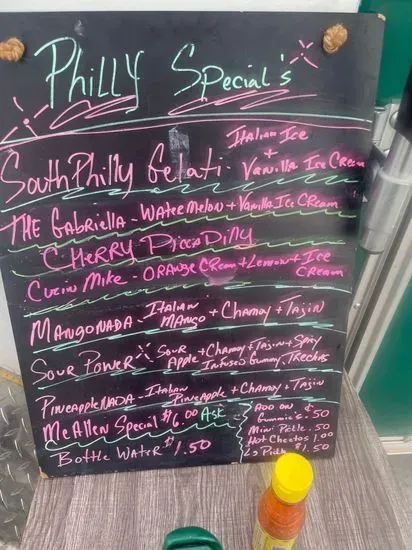 Philly Special's
South Philly Gelati - Italian Ice + Vanilla Ice Cream
THE Gabriella - Watermelon + Vanilla Ice Cream
CHERRY Picca Dilly
Mike - ORANGE CReam + Lemon + Ice Cream
MANGONADA - Italian Mango + Chamoy + Tajin
SOUR POWER - Sour Apple + Chamoy + Tajin + Spicy Infused Gummy
PineappleNADA - Italian Pineapple + Chamoy + Tajin
McAllen Special $6.00 Ask
Bottle Water $1.50
ADD ON
Gummie's .50
Mini Pickle .50
Hot Cheetos 1.00
$1.50